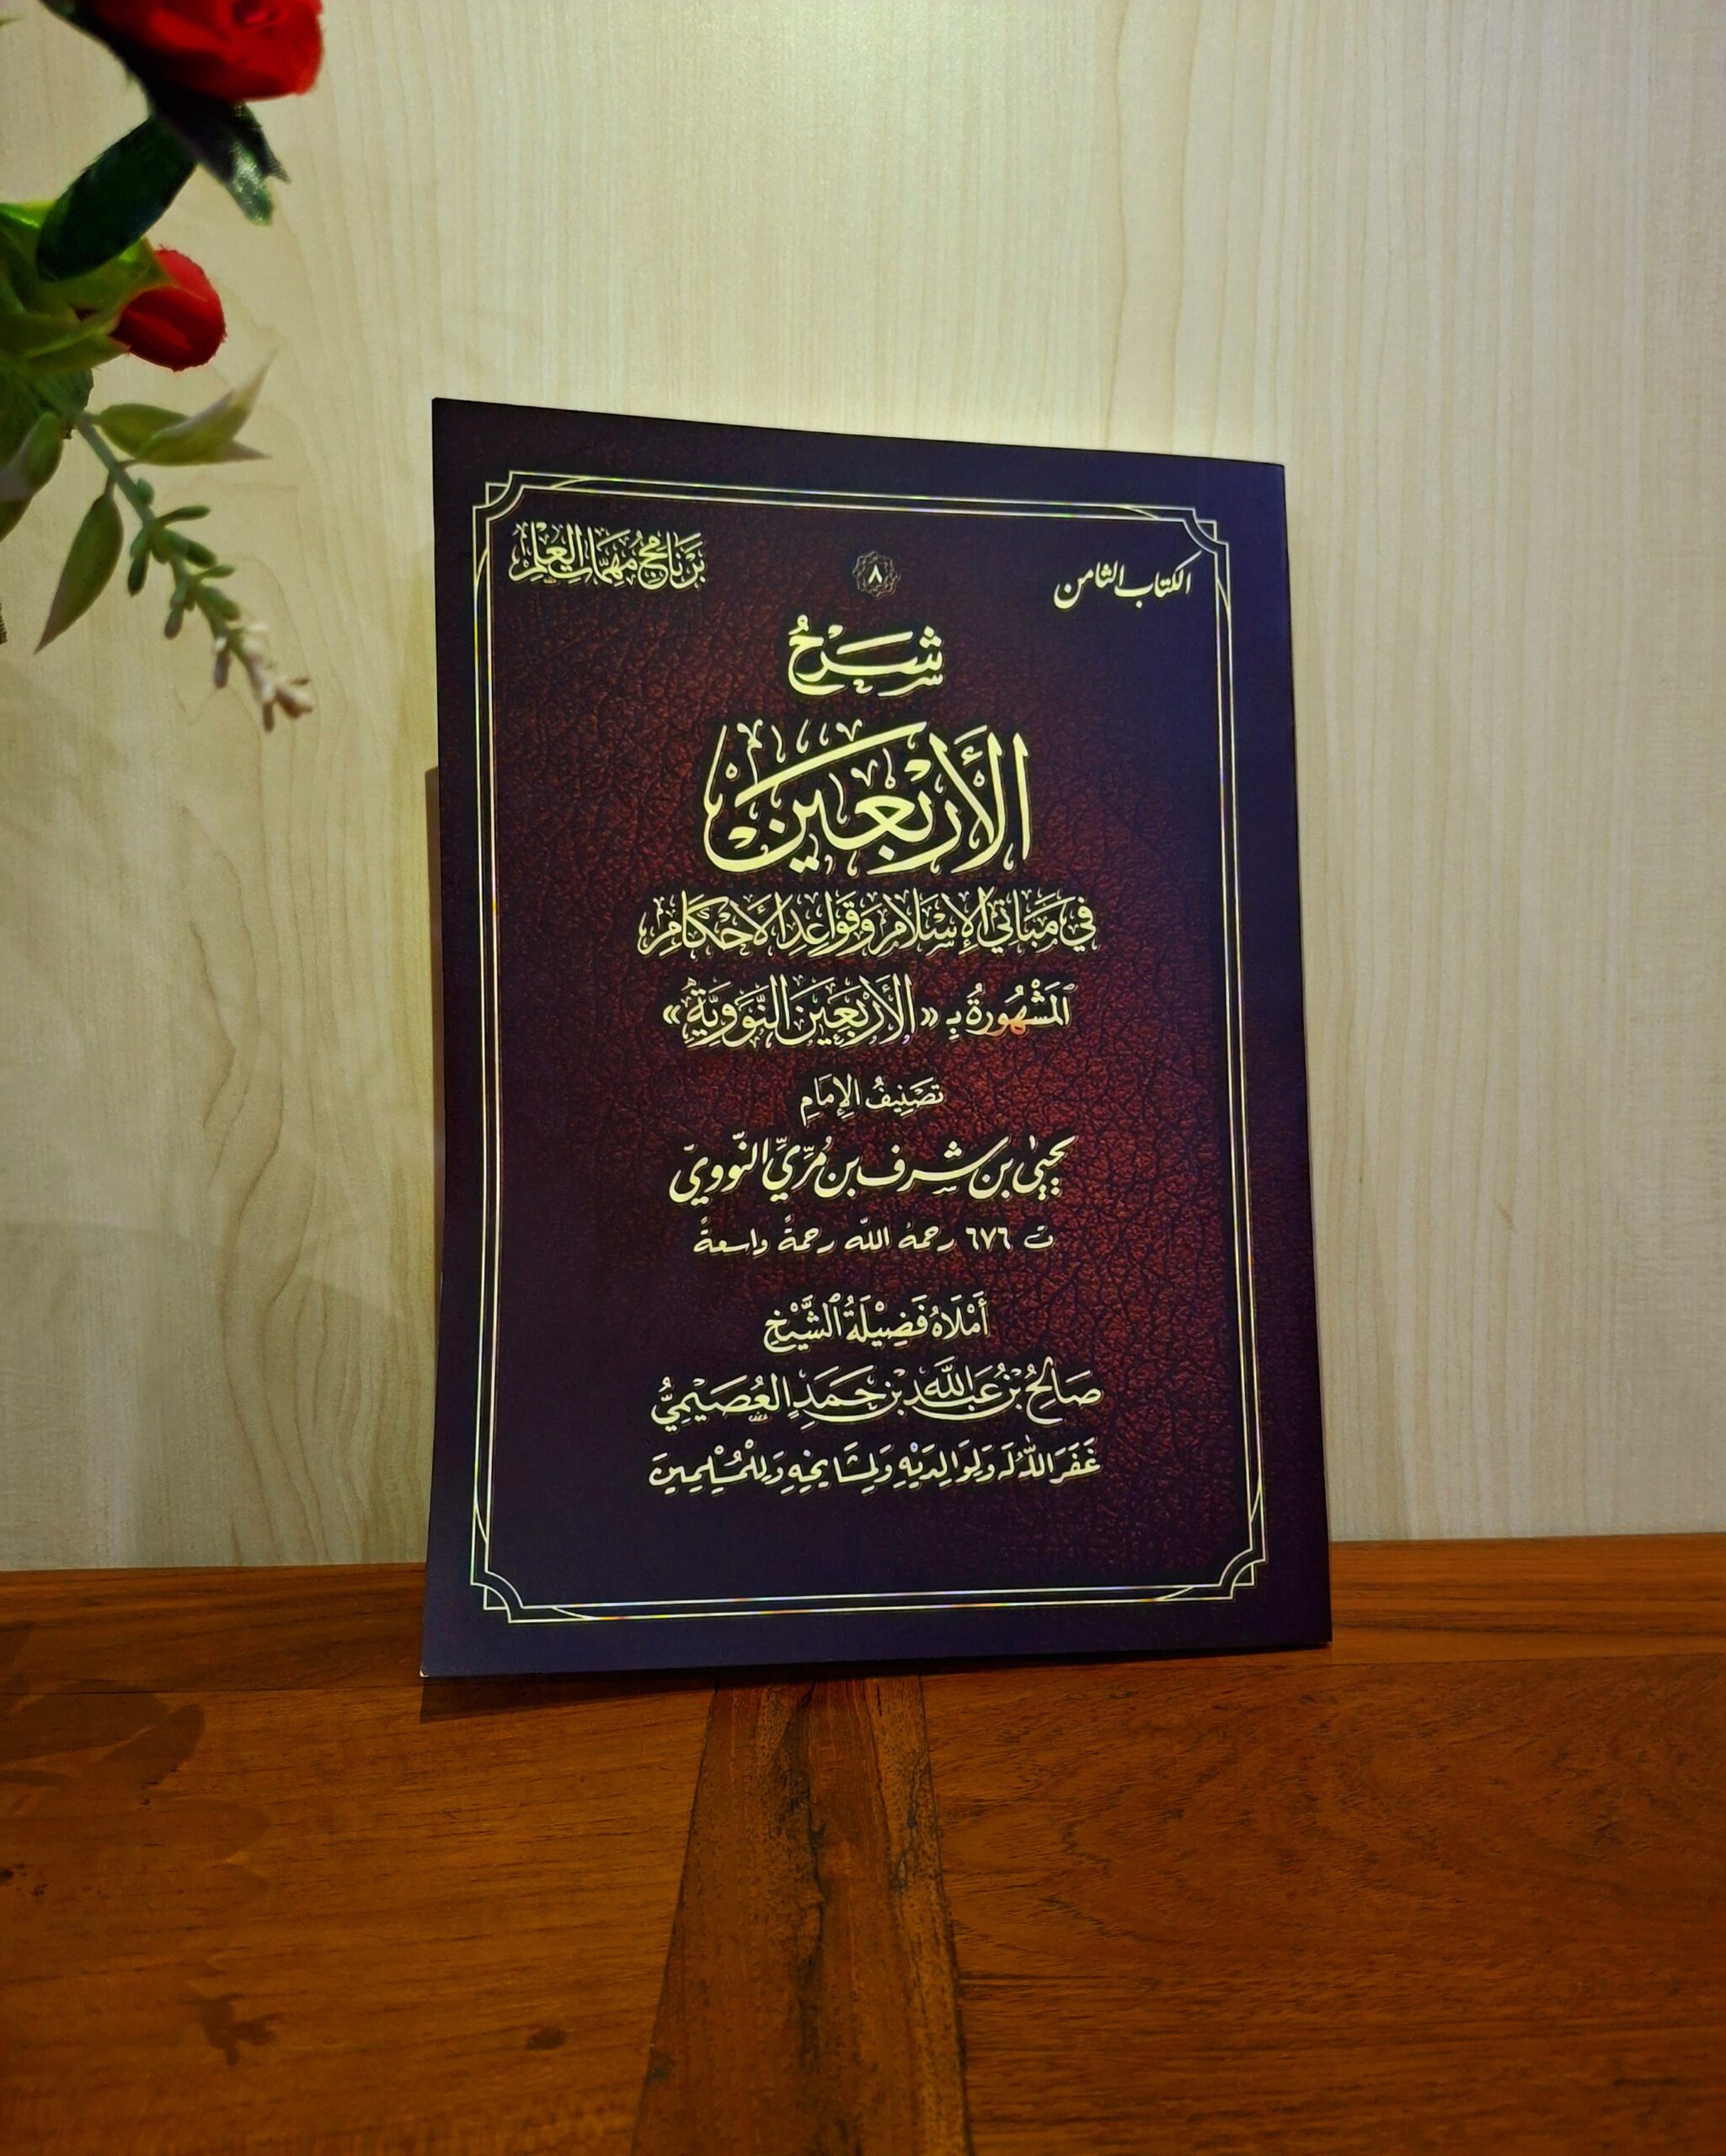 الكتاب الثامن
٨
برنامج مهمات العلم
شَرْحُ
الأَرْبَعِينَ
فِي مَبَانِي الإِسْلَامِ وَقَوَاعِدِ الأَحْكَامِ
المَشْهُورَةُ بِـ «الأَرْبَعِينَ النَّوَوِيَّةِ»
تَصْنِيفُ الإِمَامِ
يحيىٰ بن شرف بن مُرِّيٍّ النّوويّ
ت ٦٧٦ رحمه الله رحمةً واسعةً
أَمْلَاهُ فَضِيْلَةُ الشَّيْخِ
صَالِحُ بْنُ عَبْدِ اللَّهِ بْنِ حَمَدٍ العُصَيْمِيُّ
غَفَرَ اللَّهُ لَهُ وَلِوَالِدَيْهِ وَلِمَشَايِخِهِ وَلِلْمُسْلِمِينَ